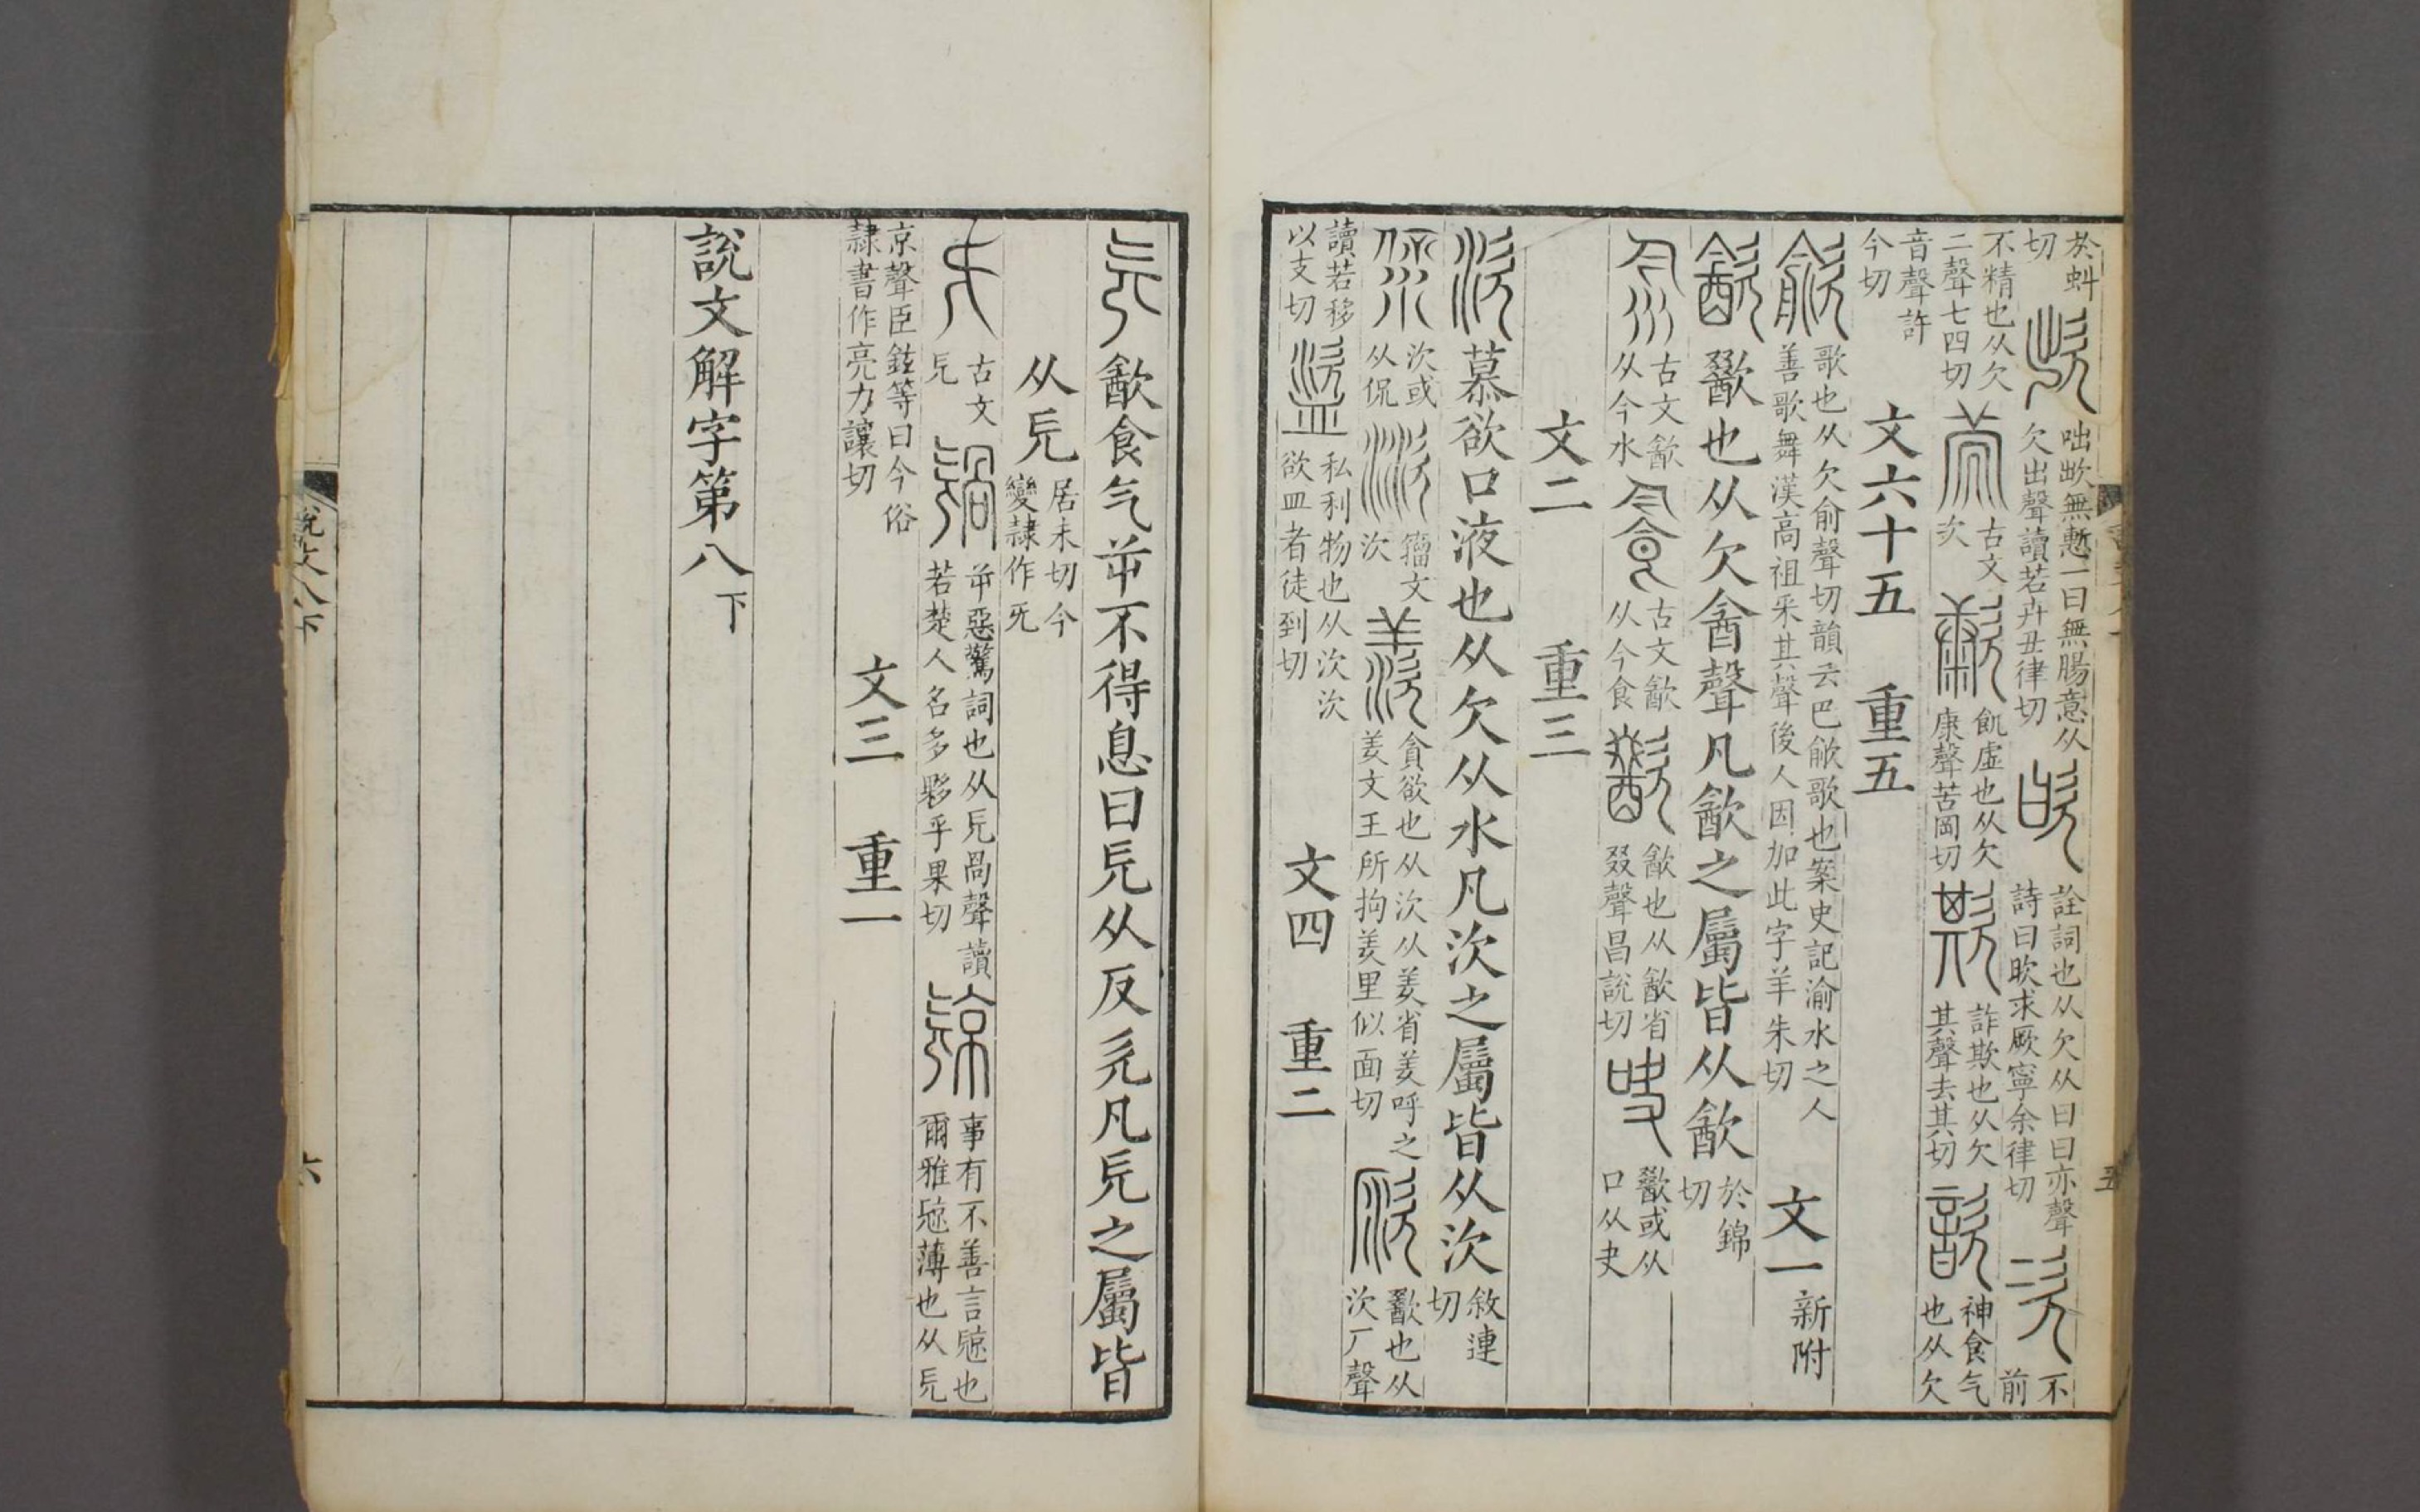 於蚪切𣢧咄𣢧無慙一曰無腸意从欠出聲讀若屮丑律切欥詮詞也从欠从曰曰亦聲詩曰欥求厥寧余律切次不前
不精也从欠二聲七四切古文次㱂飢虛也从欠康聲苦岡切欺詐欺也从欠其聲去其切歆神食气也从欠
音聲許今切 文六十五 重五
歈歌也从欠俞聲切韻云巴歈歌也案史記渝水之人善歌舞漢高祖采其聲後人因加此字羊朱切 文一新附
㱃歠也从欠酓聲凡㱃之屬皆从㱃於錦切
古文㱃从今水古文㱃从今食歠㱃也从㱃省叕聲昌說切歠或从口从夬
文二 重三
㳄慕欲口液也从欠从水凡㳄之屬皆从㳄敘連切
㳄或从侃籀文㳄羨貪欲也从㳄从羑省羑呼之羑文王所拘羑里似面切歠也从㳄厂聲
讀若移以支切盜私利物也从㳄㳄欲皿者徒到切 文四 重二
㱃食气屰不得息曰旡从反欠凡旡之屬皆
从旡居未切今變隸作旡
古文旡屰惡驚詞也从旡咼聲讀若楚人名多夥乎果切事有不善言䣼也爾雅䣼薄也从旡
京聲臣鉉等曰今俗隸書作亮力讓切 文三 重一
說文解字第八下
說文八下
六
五